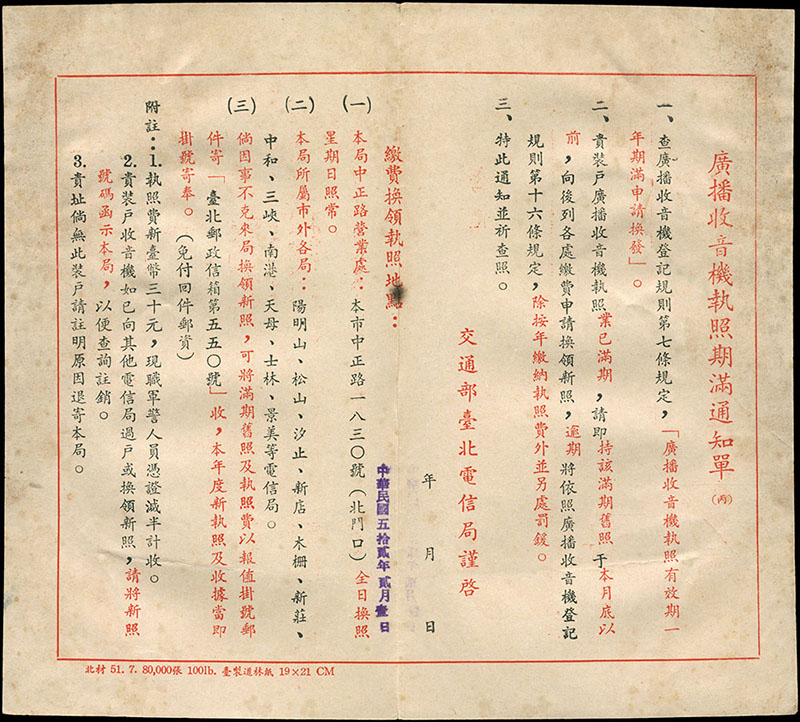 廣播收音機執照期滿通知單(丙)
一、查廣播收音機登記規則第七條規定,「廣播收音機執照有效期一
年期滿申請換發」。
二、貴裝戶廣播收音機執照業已滿期,請即持該滿期舊照于本月底以
前,向後列各處繳費申請換領新照,逾期將依照廣播收音機登記
規則第十六條規定,除按年繳納執照費外並另處罰鍰。
三、特此通知並祈查照。
交通部臺北電信局謹啓
年 月 日
中華民國五拾貳年貳月壹日
繳費換領執照地點:
(一)本局中正路營業處:本市中正路一八三〇號(北門口)全日換照
星期日照常。
(二)本局所屬市外各局:陽明山、松山、汐止、新店、木柵、新莊、
中和、三峽、南港、天母、士林、景美等電信局。
(三)倘因事不克來局換領新照,可將滿期舊照及執照費以報值掛號郵
件寄「臺北郵政信箱第五五〇號」收,本年度新執照及收據當即
掛號寄奉。(免付回件郵資)
附註:1.執照費新臺幣三十元,現職軍警人員憑證減半計收。
2.貴裝戶收音機如已向其他電信局過戶或換領新照,請將新照
號碼函示本局,以便查詢註銷。
3.貴址倘無此裝戶請註明原因退寄本局。
北材 51. 7. 80,000張 100lb. 臺製道林紙 19×21 CM